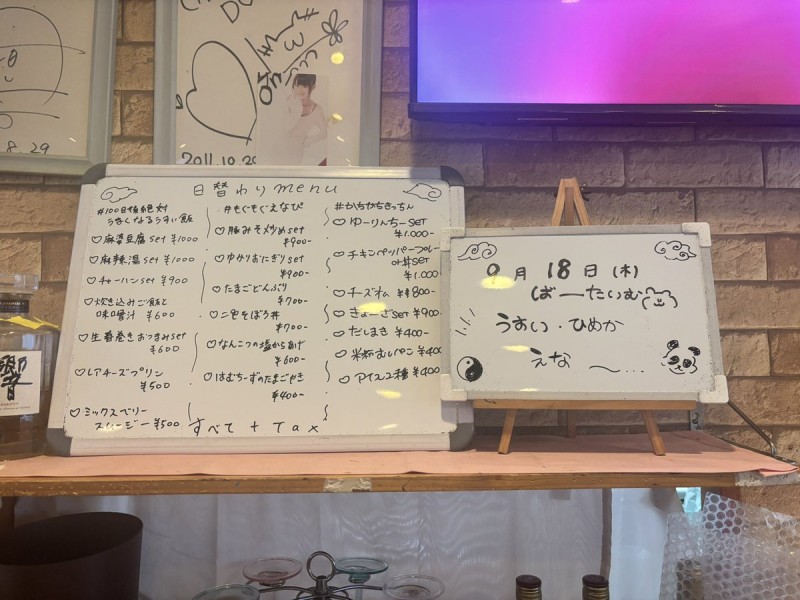 8.29
2011.10.20
日替わりmenu
#100日後絶対
うまくなるうすい飯
♡麻婆豆腐set ¥1000
♡麻辣湯set ¥1000
♡チャーハンset ¥900
♡炊き込みご飯と
味噌汁 ¥600
♡生春巻きおつまみset
¥600
♡レアチーズプリン
¥500
♡ミックスベリー
スムージー ¥500
#もぐもぐえなぴ
♡豚みそ炒めset
¥900-
♡ゆかりおにぎりset
¥900-
♡たまごどんぶり
¥700-
♡二色そぼろ丼
¥700-
♡なんこつの塩からあげ
¥600-
♡はむちーずのたまごやき
¥400-
#かちかちきっちん
♡ゆーりんちーset
¥1.000-
♡チキンペッパーフレー
¥1.000
♡チーズオム ¥800-
♡ぎょーざset ¥900
♡だしまき ¥400-
♡米粉むしパン ¥400
♡アイス2種 ¥400
すべて + Tax
9月18日(木)
ばーたいむ
うすい・ひめか
えな 〜…
響